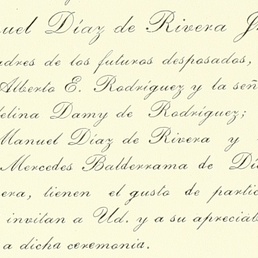 uel Díaz de Rivera J
adres de los futuros desposados,
Alberto E. Rodríguez y la señ
elina Damy de Rodríguez;
Manuel Díaz de Rivera y
Mercedes Balderrama de Dí
era, tienen el gusto de partic
invitan a Ud. y a su apreciab
a dicha ceremonia.